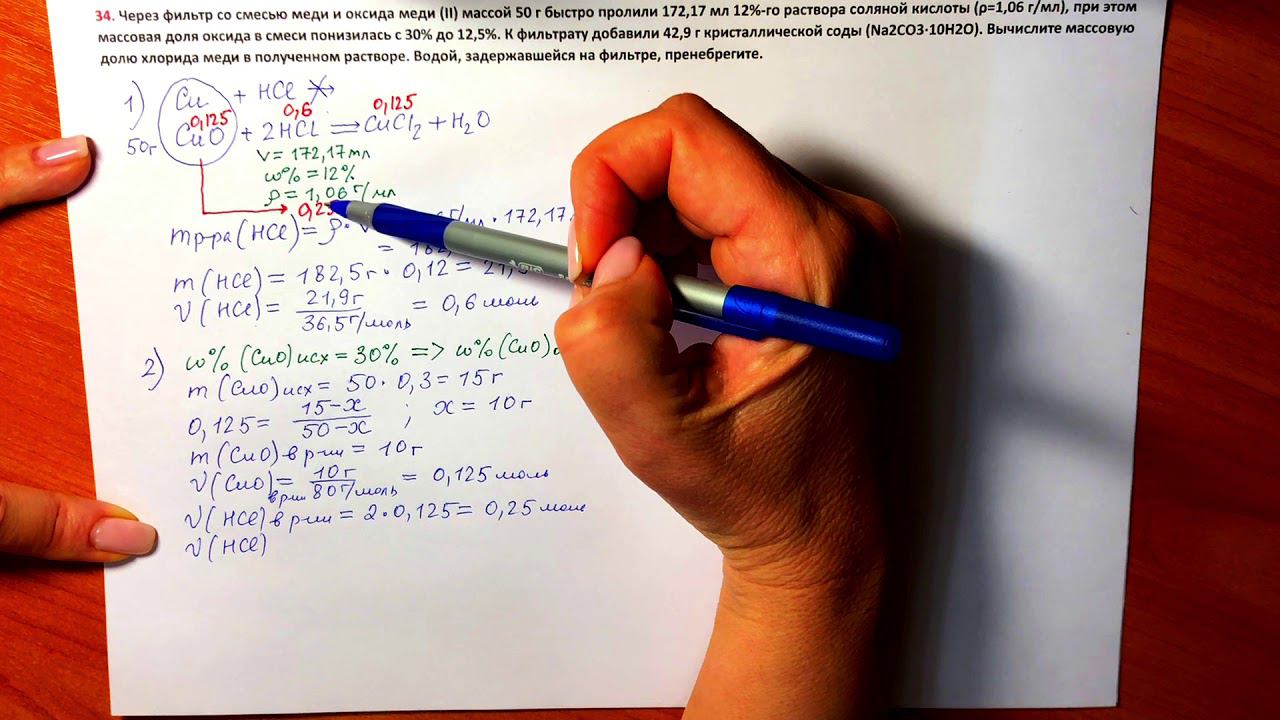 34. Через фильтр со смесью меди и оксида меди (II) массой 50 г быстро пролили 172,17 мл 12%-го раствора соляной кислоты (ρ=1,06 г/мл), при этом
массовая доля оксида в смеси понизилась с 30% до 12,5%. К фильтрату добавили 42,9 г кристаллической соды (Na2CO3·10H2O). Вычислите массовую
долю хлорида меди в полученном растворе. Водой, задержавшейся на фильтре, пренебрегите.
1) Cu + HCl
0,125 0,6 0,125
CuO + 2HCl = CuCl₂ + H₂O
50г
V = 172,17 мл
ω% = 12%
ρ = 1,06 г/мл
mр-ра (HCl) = ρ· г/мл · 172,17
=
m (HCl) = 182,5г · 0,12 =
ν (HCl) = 21,9г / 36,5г/моль = 0,6 моль
2) ω% (CuO) исх = 30% => ω% (CuO)
m (CuO) исх = 50 · 0,3 = 15г
0,125 = 15-x / 50-x ; x = 10г
m (CuO) в р-ции = 10г
ν (CuO) в р-ции = 10г / 80г/моль = 0,125 моль
ν (HCl) в р-ции = 2 · 0,125 = 0,25 моль
ν (HCl)